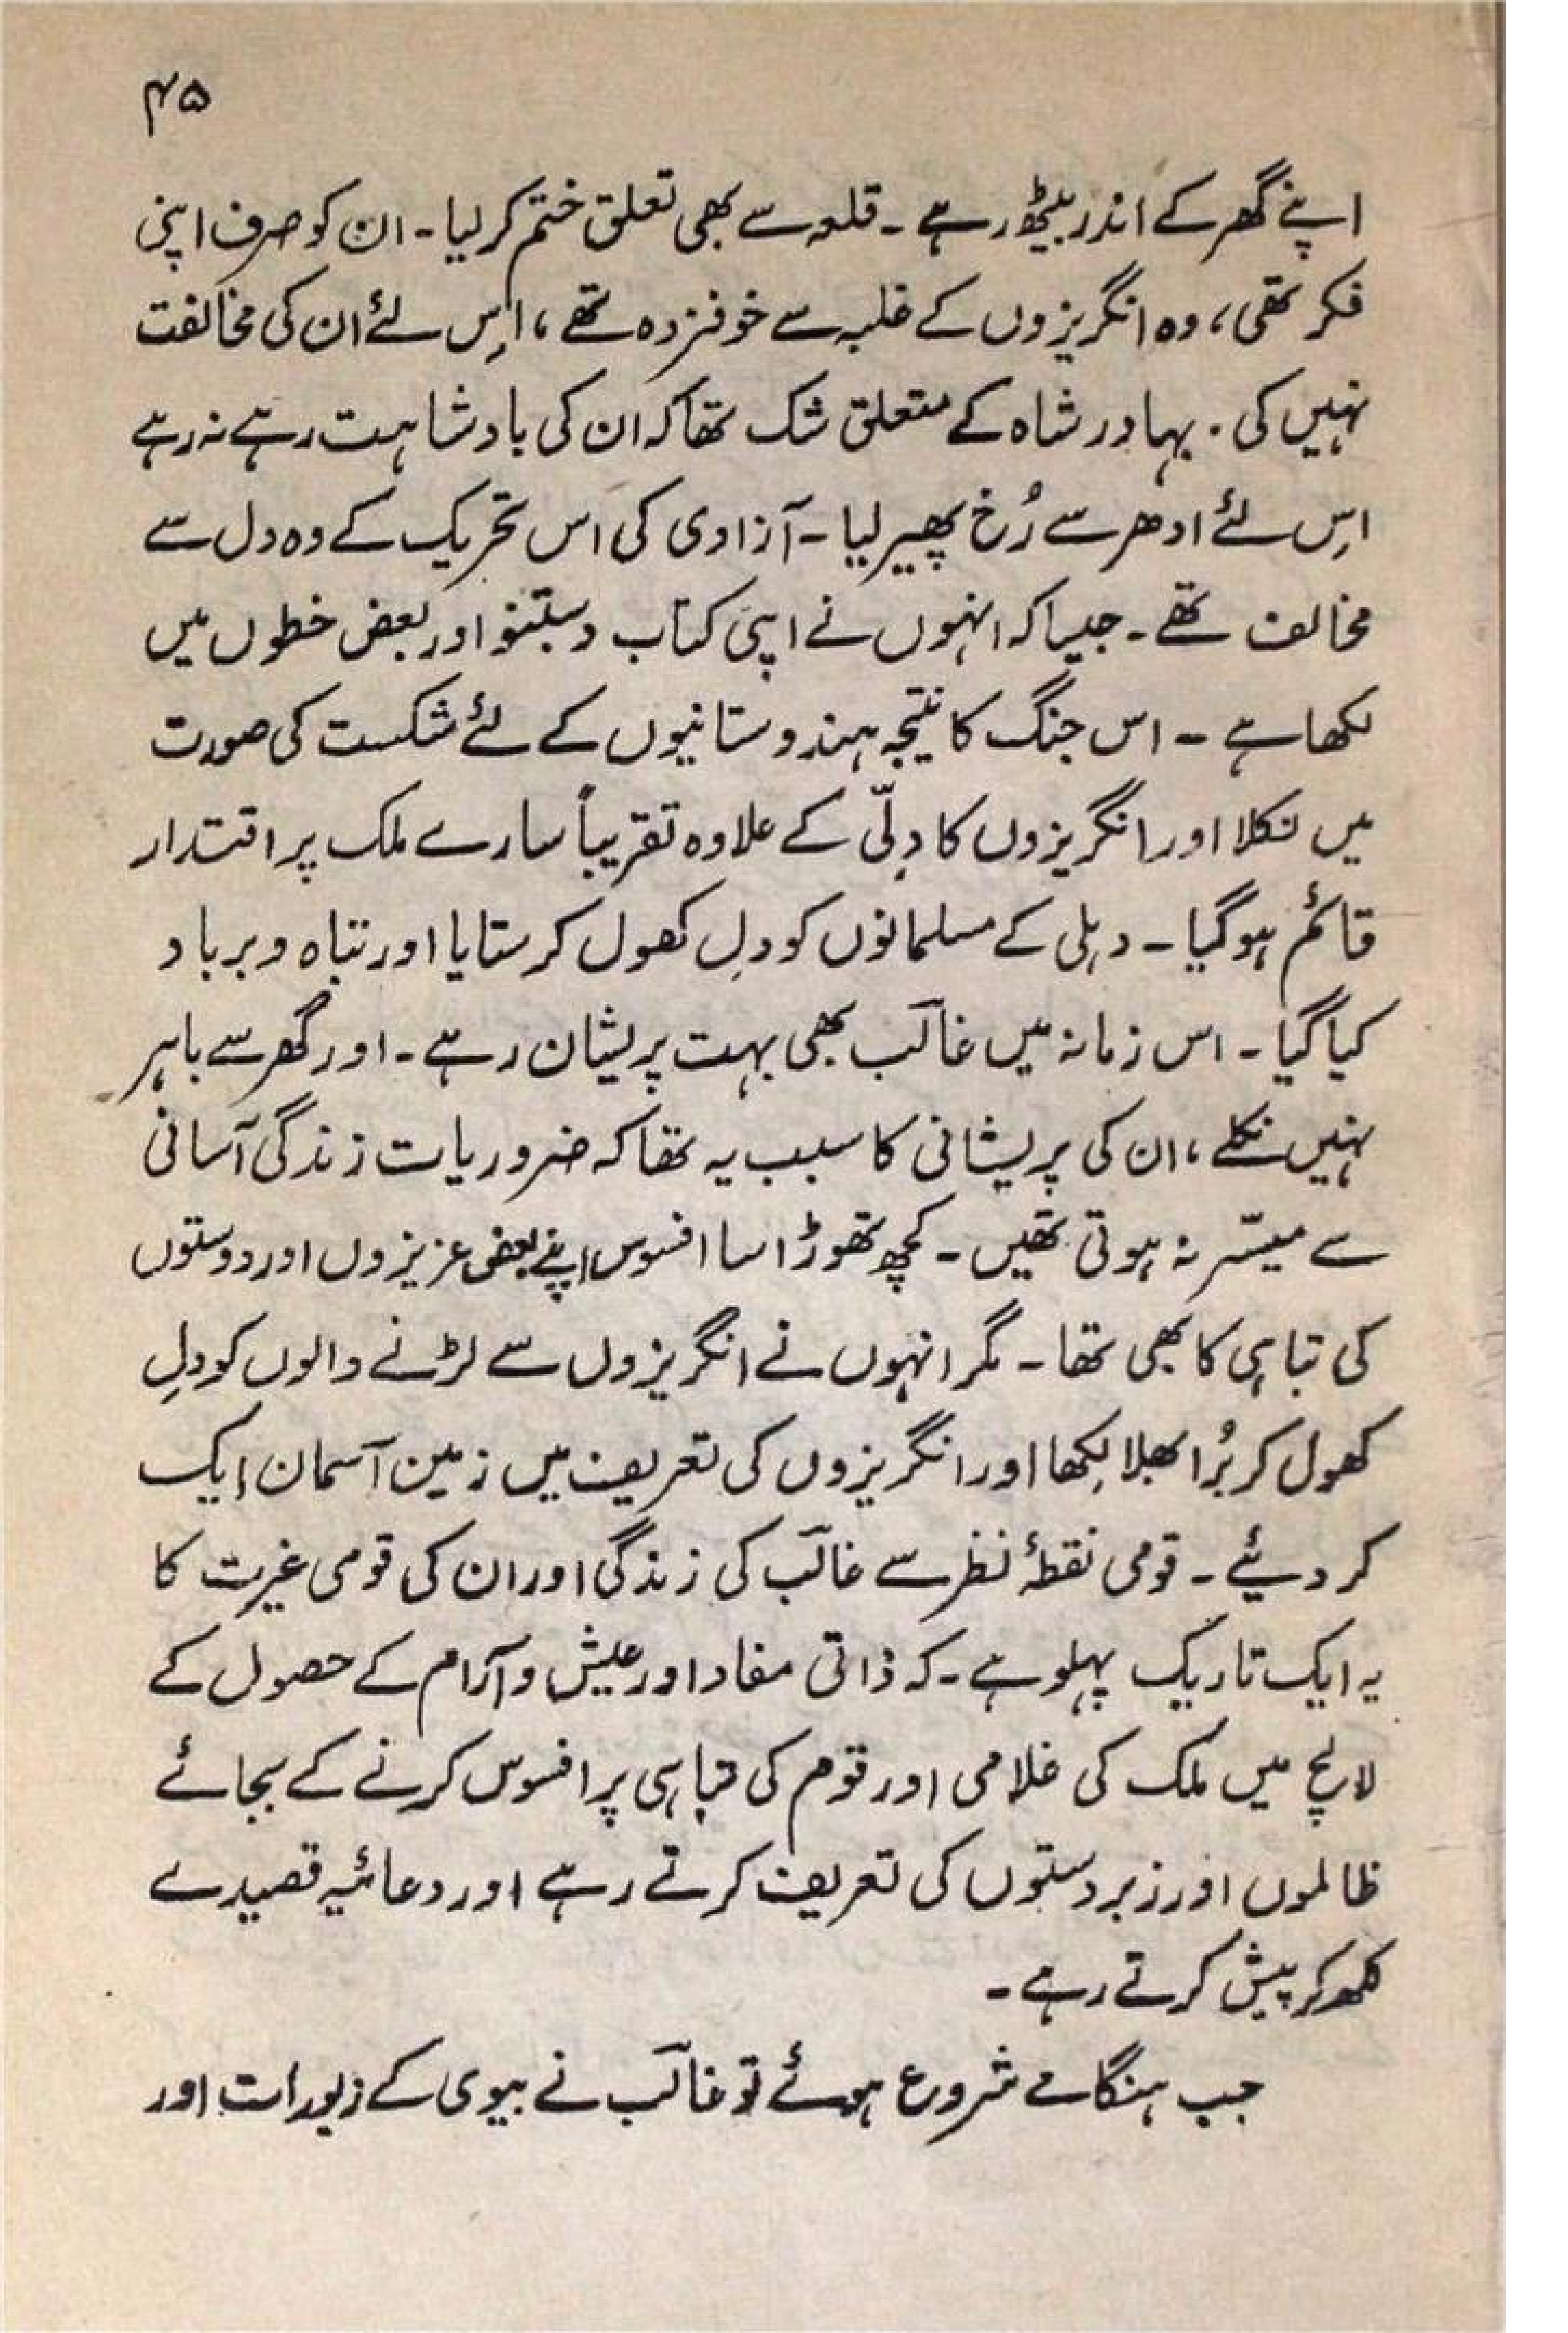 ۴۵
اپنے گھر کے اندر بیٹھ رہے ۔ قلعہ سے بھی تعلق ختم کر لیا ۔ ان کو صرف اپنی
فکر تھی ، وہ انگریزوں کے غلبہ سے خوفزدہ تھے ، اِس لئے ان کی مخالفت
نہیں کی ۔ بہادر شاہ کے متعلق شک تھا کہ ان کی بادشاہت رہے نہ رہے
اس لئے ادھر سے رُخ پھیر لیا ۔ آزادی کی اس تحریک کے وہ دل سے
مخالف تھے ۔ جیسا کہ انہوں نے اپنی کتاب دستنبو اور بعض خطوں میں
لکھا ہے ۔ اس جنگ کا نتیجہ ہندوستانیوں کے لئے شکست کی صورت
میں نکلا اور انگریزوں کا دِلّی کے علاوہ تقریباً سارے ملک پر اقتدار
قائم ہو گیا ۔ دہلی کے مسلمانوں کو دل کھول کر ستایا اور تباہ و برباد
کیا گیا ۔ اس زمانہ میں غالب بھی بہت پریشان رہے ۔ اور گھر سے باہر
نہیں نکلے ، ان کی پریشانی کا سبب یہ تھا کہ ضروریات زندگی آسانی
سے میسّر نہ ہوتی تھیں ۔ کچھ تھوڑا سا افسوس اپنے بعض عزیزوں اور دوستوں
کی تباہی کا بھی تھا ۔ مگر انہوں نے انگریزوں سے لڑنے والوں کو دل
کھول کر بُرا بھلا لکھا اور انگریزوں کی تعریف میں زمین آسمان ایک
کر دیئے ۔ قومی نقطۂ نظر سے غالب کی زندگی اور ان کی قومی غیرت کا
یہ ایک تاریک پہلو ہے ۔ کہ ذاتی مفاد اور عیش و آرام کے حصول کے
لالچ میں ملک کی غلامی اور قوم کی تباہی پر افسوس کرنے کے بجائے
ظالموں اور زبردستوں کی تعریف کرتے رہے اور دعائیہ قصیدے
لکھ کر پیش کرتے رہے ۔
جب ہنگامے شروع ہوئے تو غالب نے بیوی کے زیورات اور